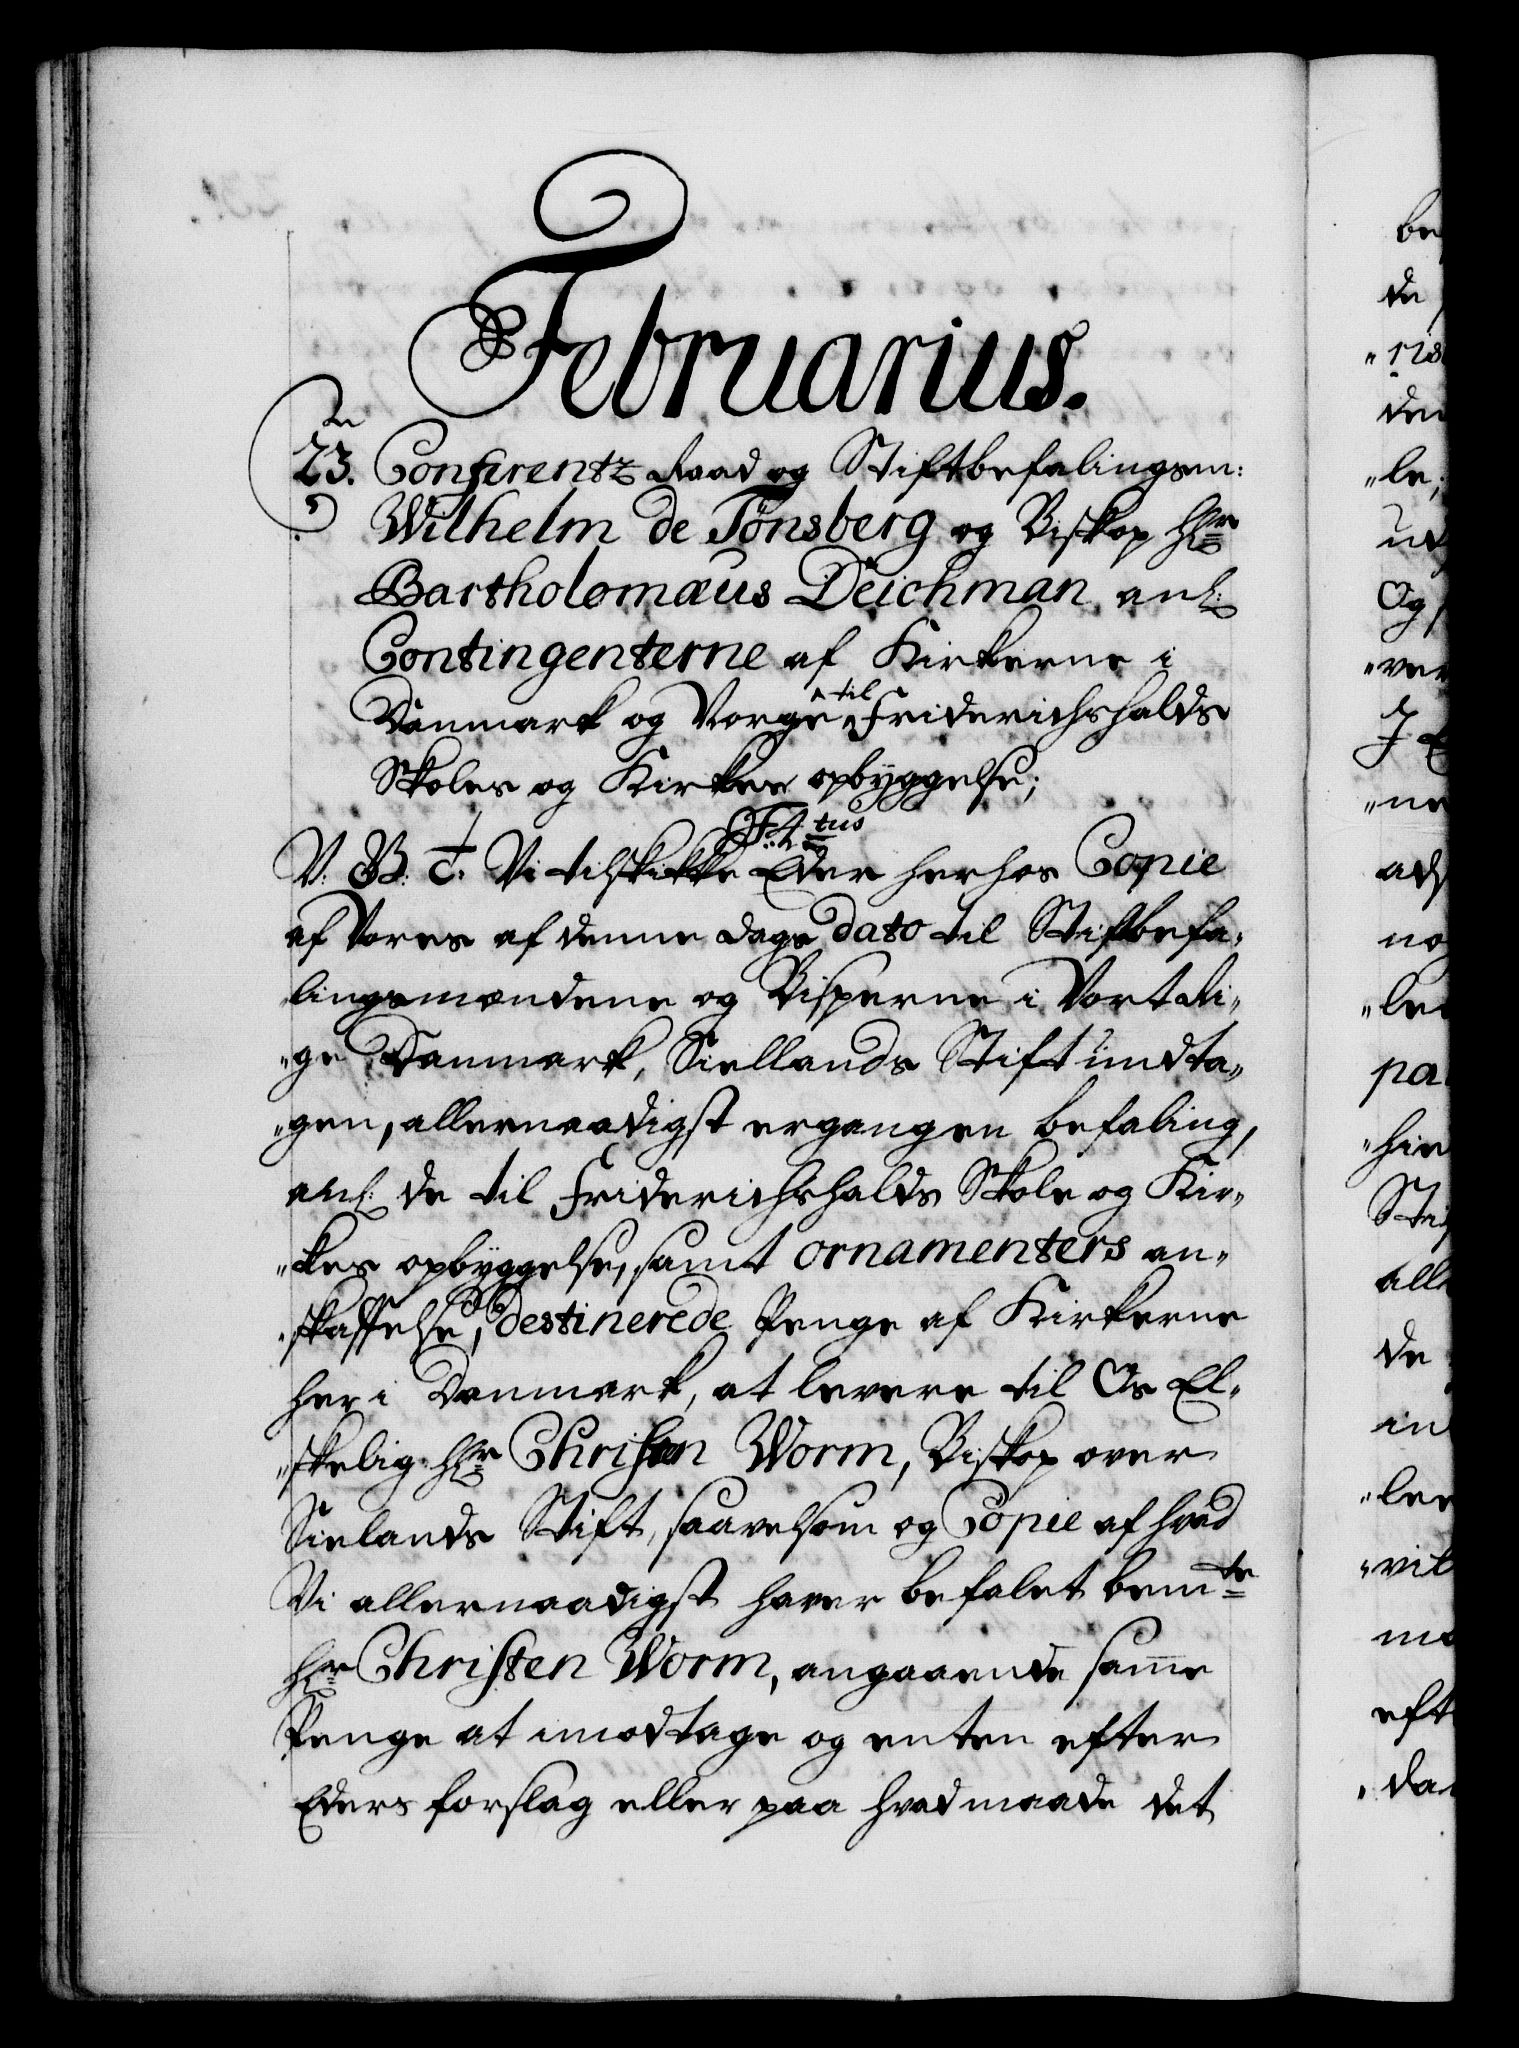 Februarius.
23. Conferentz Raad og Stiftbefalingsm:
Wilhelm de Tönsberg og Biskop Hr
Bartholomæus Deichman anl:
Contingenterne af Kirkerne i
Danmark og Norge til Friderichshalds
Skoles og Kirkes opbyggelse;
F: 4tus
V. G. T. Vi tilskikke Eder herhos Copie
af Vores af denne Dags dato til Stiftbefa„
lingsmændene og Bisperne i Vort Ri„
„ge Danmark, Siellands Stift undta„
„gen, allernaadigst ergangen befaling,
anl: de til Friderichshalds Skole og Kir„
„kes opbyggelse, samt ornamenters an„
„skaffelse, destinerede Penge af Kirkerne
her i Danmark, at levere til Os El„
„skelig Hr Christen Worm, Biskop over
Sielands Stift, saavelsom og Copie af hvad
Vi allernaadigst haver befalet bemte
Hr Christen Worm, angaaende samme
Penge at imodtage og enten efter
Eders forslag eller paa hvad maade det
be
de
„ris
den
„le,
ud
Og
„ver
J
„ne
ads
no
„le
pa
„hie
Sti
all
de
in
„ler
„vil
mo
eft
„da